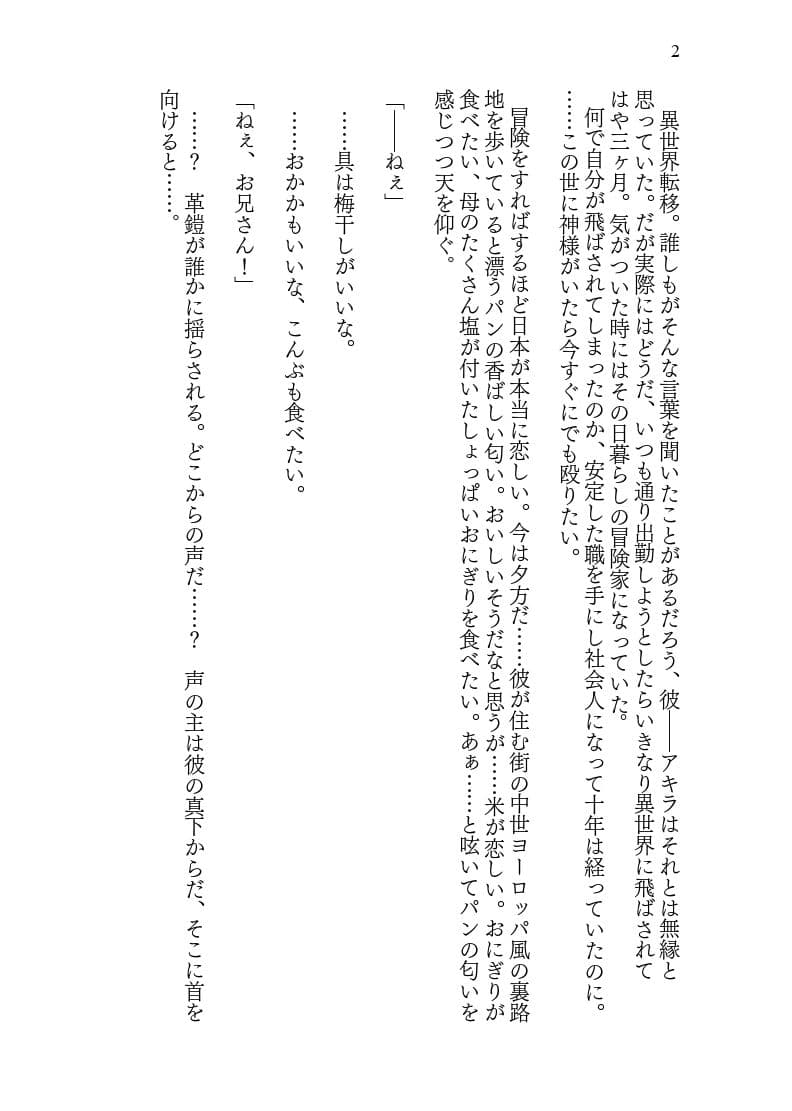 2
異世界転移。誰しもがそんな言葉を聞いたことがあるだろう、彼――アキラはそれとは無縁と
思っていた。だが実際にはどうだ、いつも通り出勤しようとしたらいきなり異世界に飛ばされて
はや三ヶ月。気がついた時にはその日暮らしの冒険家になっていた。
何で自分が飛ばされてしまったのか、安定した職を手にし社会人になって十年は経っていたのに。
……この世に神様がいたら今すぐにでも殴りたい。
冒険をすればするほど日本が本当に恋しい。今は夕方だ……彼が住む街の中世ヨーロッパ風の裏路
地を歩いていると漂うパンの香ばしい匂い。おいしいそうだなと思うが……米が恋しい。おにぎりが
食べたい、母のたくさん塩が付いたしょっぱいおにぎりを食べたい。あぁ……と呟いてパンの匂いを
感じつつ天を仰ぐ。
「――ねぇ」
……具は梅干しがいいな。
……おかかもいいな、こんぶも食べたい。
「ねぇ、お兄さん！」
……？　革鎧が誰かに揺らされる。どこからの声だ……？　声の主は彼の真下からだ、そこに首を
向けると……。